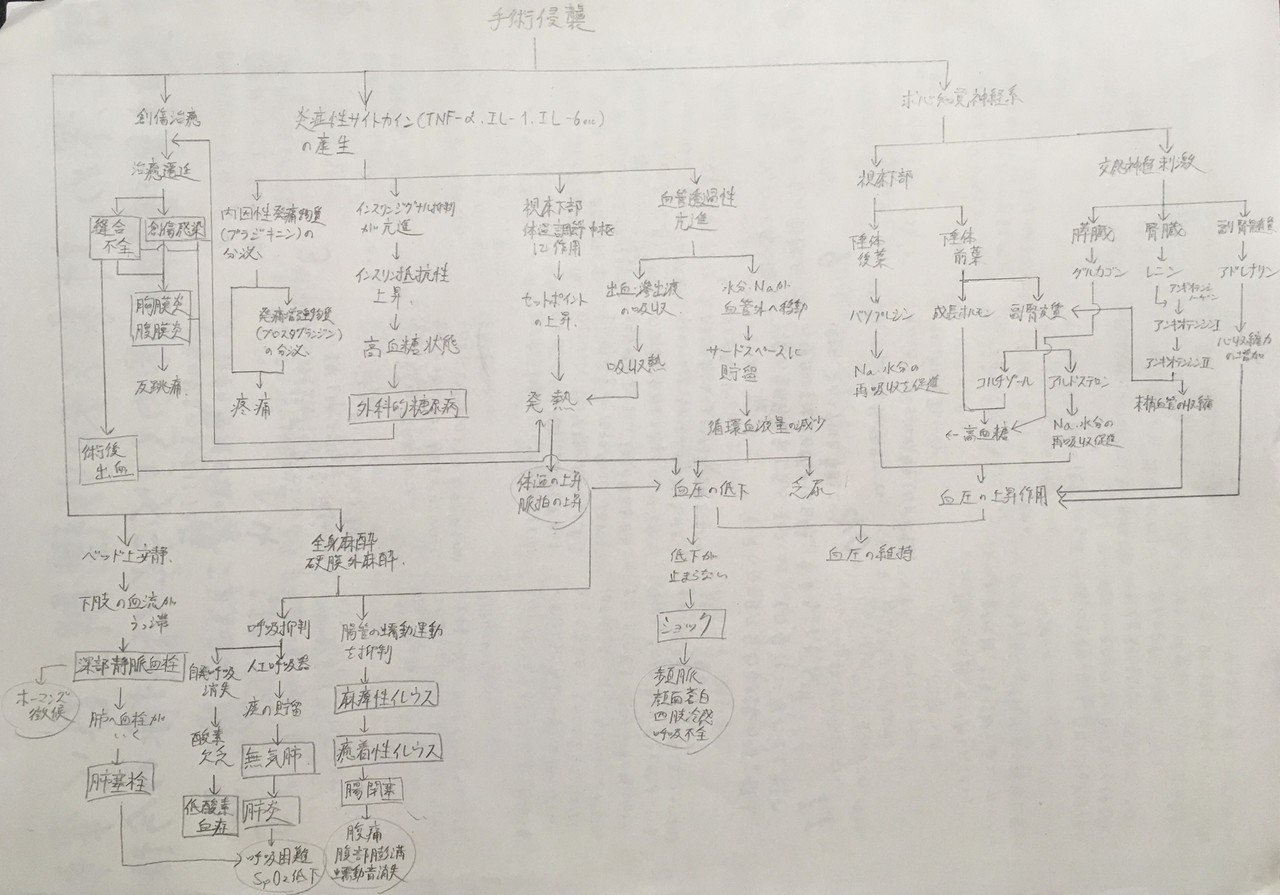 手術侵襲
創傷治癒
治癒遷延
縫合
不全
創傷感染
胸膜炎
腹膜炎
反跳痛
術後
出血
炎症性サイトカイン(TNF-α、IL-1、IL-6 etc)
の産生
内因性発痛物質
(ブラジキニン)の
分泌
発痛増強物質
(プロスタグランジン)
の分泌
疼痛
インスリンシグナル抑制
が亢進
インスリン抵抗性
上昇
高血糖状態
外科的糖尿病
視床下部
体温調節中枢
に作用
セットポイント
の上昇
発熱
体温の上昇
脈拍の上昇
血管透過性
亢進
出血・滲出液
の吸収
吸収熱
水分・Naが
血管外へ移動
サードスペースに
貯留
循環血液量の減少
血圧の低下
乏尿
低下が
止まらない
ショック
頻脈
顔面蒼白
四肢冷感
呼吸不全
求心知覚神経系
視床下部
下垂体
後葉
バソプレシン
Na・水分の
再吸収を促進
下垂体
前葉
成長ホルモン
副腎皮質
コルチゾール
アルドステロン
←高血糖
Na・水分の
再吸収促進
交感神経刺激
膵臓
グルカゴン
腎臓
レニン
アンギオテンシ
ノーゲン
アンギオテンシンI
アンギオテンシンII
末梢血管の収縮
副腎髄質
アドレナリン
心収縮力
の増加
血圧の上昇作用
血圧の維持
ベッド上安静
下肢の血流が
うっ滞
深部静脈血栓
ホーマンズ
徴候
肺へ血栓が
いく
肺塞栓
全身麻酔
硬膜外麻酔
呼吸抑制
自発呼吸
消失
酸素
欠乏
低酸素
血症
人工呼吸器
痰の貯留
無気肺
肺炎
呼吸困難
SpO2低下
腸管の蠕動運動
を抑制
麻痺性イレウス
癒着性イレウス
腸閉塞
腹痛
腹部膨満
蠕動音消失